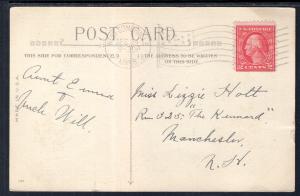 POST CARD
THIS SIDE FOR CORRESPONDENCE
THE ADDRESS TO BE WRITTEN
ON THIS SIDE.
U.S. POSTAGE
2 CENTS 2
Aunt Emma
&
Uncle Will.
Miss Lizzie Holt
Rm 325. "The Kennard"
Manchester
N.H.